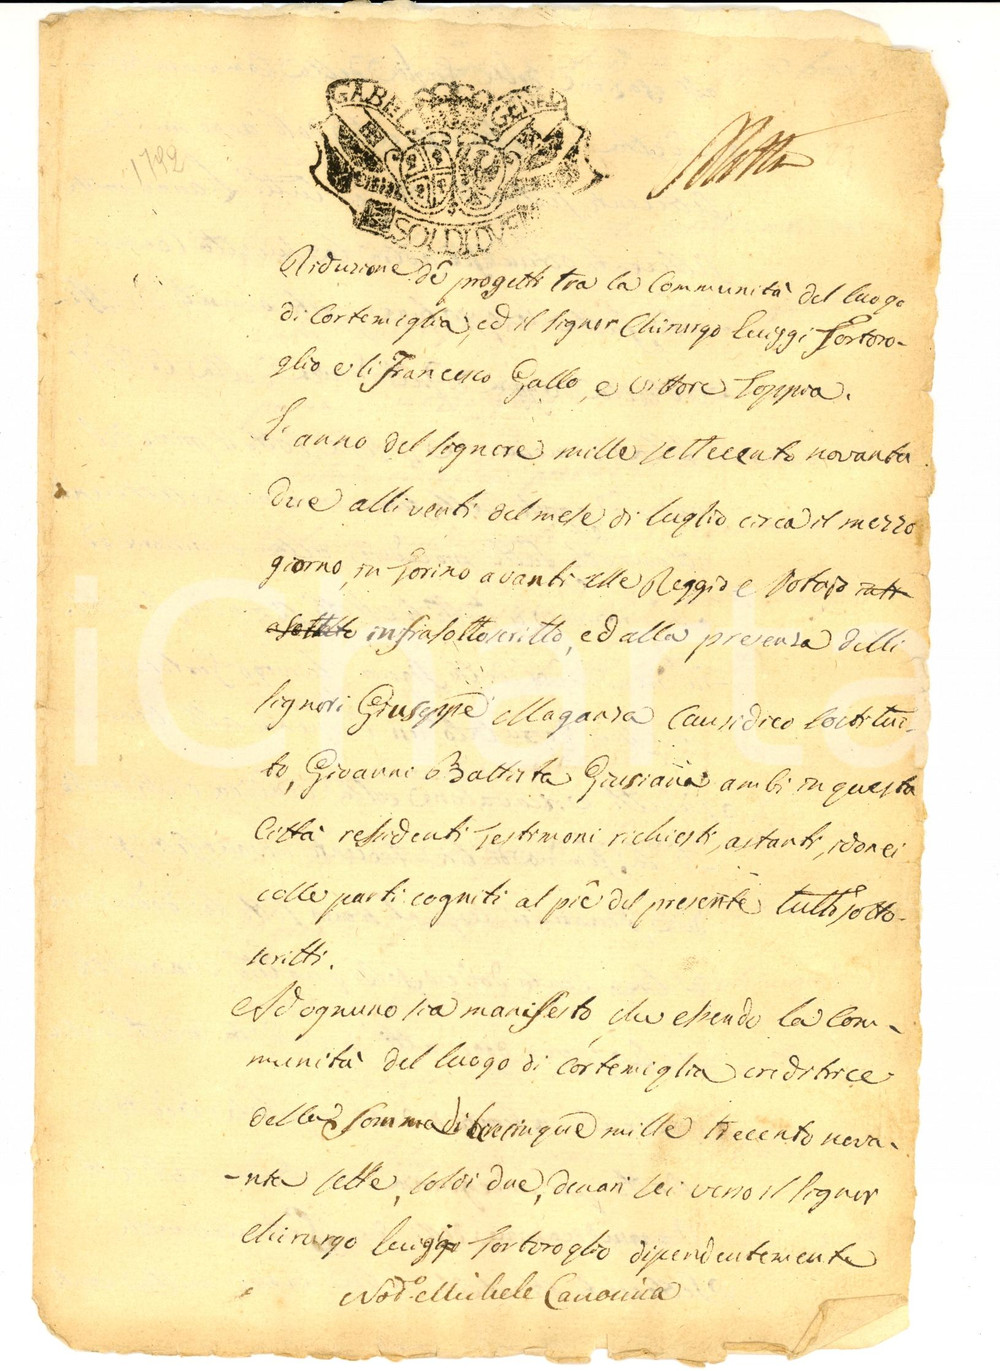 GABEL GENER
SOLDI DVE
1792
Riduzione de progetti tra la Communità del luogo
di Cortemiglia, ed il Signor Chirurgo Luiggi Sortoro-
glio e li Francesco Gallo, e Vittore Soppia.
L'anno del Signore mille settecento novanta
due alli venti del mese di luglio circa il mezzo
giorno, in Torino avanti me Reggio Notajo
infrasottoscritto, ed alla presenza delli
Signori Giuseppe Maganza Causidico sostitui-
to, Giovanni Battista Giusiana ambi in questa
Città residenti testimoni richiesti, astanti, idonei
colle parti cogniti al piè del presente tutti sotto-
scritti.
Ad ognuno sia manifesto, che essendo la Com-
munità del luogo di Cortemiglia creditrice
della somma di cinque mille trecento nova-
-nta sette, soldi due, denari sei verso il Signor
Chirurgo Luiggi Sortoroglio dipendentemente
Nod.o Michele Canonica
iCharta